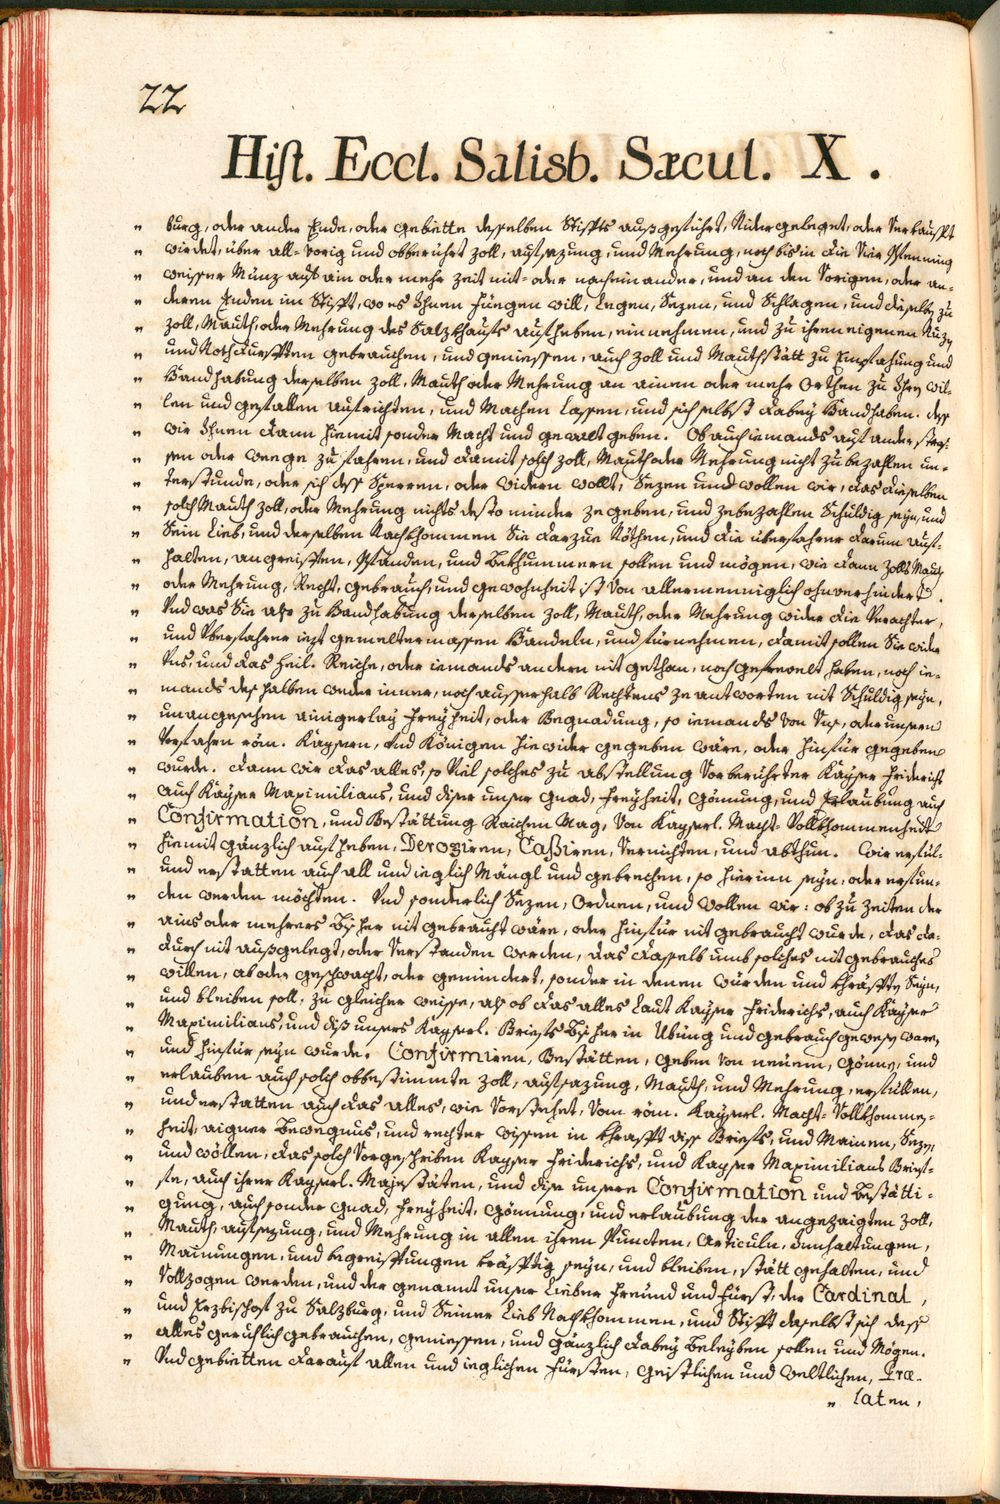 22
Hist. Eccl. Salisb. Sæcul. X.
" burg, oder ander Ende, oder gebiette desselben Stiffts außgeführt, Nidergeleget, oder Verkaufft
" wirdet, über all-vorig und obberührt Zoll, aufsazung, und Mehrung, noch bis in die Vier Pfenning
" weisser Münz auf ain oder mehr Zeit mit- oder nacheinander, und an den Vorigen, oder an-
" deren Enden im Stifft, wo es Ihnen füegen will, Legen, Sezen, und Schlagen, und dieselbe zu
" Zoll, Mauth, oder Mehrung des Salzkhaufs aufheben, einnehmen, und zu ihren eigenen Nuzen
" und Notdürfften gebrauchen, und geniessen, auch Zoll und Mauthstätt zu Empfahung und
" Handhabung derselben Zoll, Mauth oder Mehrung an ainen oder mehr Orthen zu Ihren wil-
" len und gefallen aufrichten, und Machen Lassen, und sich selbst dabey Handhaben. dess
" wir Ihnen dann hiemit sonder Macht und gewalt geben. Ob auch iemands auf ander stras-
" sen oder weege zu fahren, und damit solch Zoll, Mauth oder Mehrung nicht zu bezahlen un-
" terstunde, oder sich dess Sperren, oder widern wollt, Sezen und wollen wir, das dieselben
" solch Mauth Zoll, oder Mehrung nichts desto minder ze geben, und ze bezahlen Schuldig seyn, und
" Sein Lieb, und derselben Nachkhommen Sie darzue Nöthen, und die überfahrer darum auf-
" halten, angreiffen, Pfänden, und Bekhummern sollen und mögen, wie dann Zolls Mauth
" oder Mehrung, Recht, gebrauch, und gewohnheit ist von allermenniglich ohnverhindert.
" Und was Sie also zu Handhabung derselben Zoll, Mauth, oder Mehrung wider die Verachter,
" und Überfahrer iezt gemeltermassen Handeln, und fürnehmen, damit sollen Sie wider
" Uns, und das Heil. Reiche, oder iemands andern nit gethan, noch gefrevelt haben, noch ie-
" mands deshalben weder inner, noch ausserhalb Rechtens ze antworten nit Schuldig seyn,
" unangesehen ainigerlay Freyheit, oder Begnadung, so iemands von Uns, oder unsern
" Vorfahrn röm. Kaysern, und Königen hiewider gegeben wäre, oder hinfür gegeben
" wurde. dann wir das alles, so viel solches zu abstellung Vorberührter Kayser Friderichs
" auch Kayser Maximilians, und diser unser gnad, Freyheit, gönnung, und Erlaubung auch
" Confirmation, und Bestättung Raichen Mag, von Kayserl. Macht-Vollkhommenheit
" hiemit gänzlich aufheben, Derogiren, Caßiren, Vernichten, und abthun. Wir erfül-
" und erstatten auch all und ieglich Mängl und gebrechen, so hierinn seyn, oder erfun-
" den werden möchten. Und sonderlich Sezen, Ordnen, und wollen wir: ob zu Zeiten der
" ains oder mehrers bisher nit gebraucht wäre, oder hinfür nit gebraucht wurde, das da-
" durch nit außgelegt, oder Verstanden werden, das dasselb umb solches nit gebrauches
" willen, ab oder geschwacht, oder gemindert, sonder in denen würden und khräfften Seyn,
" und bleiben soll, zu gleicher weisse, als ob das alles Laut Kayser Friderichs, auch Kayser
" Maximilians, und diß unsers Kayserl. Briefs bisher in Übung und gebrauch gewesen ware,
" und hinfür seyn wurde. Confirmiren, Bestätten, geben von neüem, gönnen, und
" erlauben auch solch obbestimmte Zoll, aufsazung, Mauth, und Mehrung, erfüllen,
" und erstatten auch das alles, wie Vorstehet, Vom röm. Kayserl. Macht-Vollkhommen-
" heit, aigner bewegnus, und rechter wissen in khrafft diss Briefs, und Mainen, Sezen,
" und wöllen, das solch Vorgeschriben Kayser Friderichs, und Kayser Maximilians Brief-
" fe, auch ihrer Kayserl. Majestäten, und dise unsere Confirmation und bestätti-
" gung, auch sonder gnad, Freyheit, gönnung, und erlaubung der angezaigten Zoll,
" Mauth, aufsezung, und Mehrung in allen ihren Puncten, Articuln, Innhaltungen,
" Mainungen, und begreiffungen kräfftig seyn, und bleiben, stätt gehalten, und
" Vollzogen werden, und der genannt unser Lieber Freund und Fürst, der Cardinal,
" und Erzbischof zu Salzburg, und Seiner Lieb Nachkhommen, und Stifft daselbst sich dess
" alles geruhlich gebrauchen, geniessen, und gänzlich dabey beleyben sollen und Mögen.
" Und gebietten darauf allen und ieglichen Fürsten, Geistlichen und Weltlichen, Præ-
" laten,